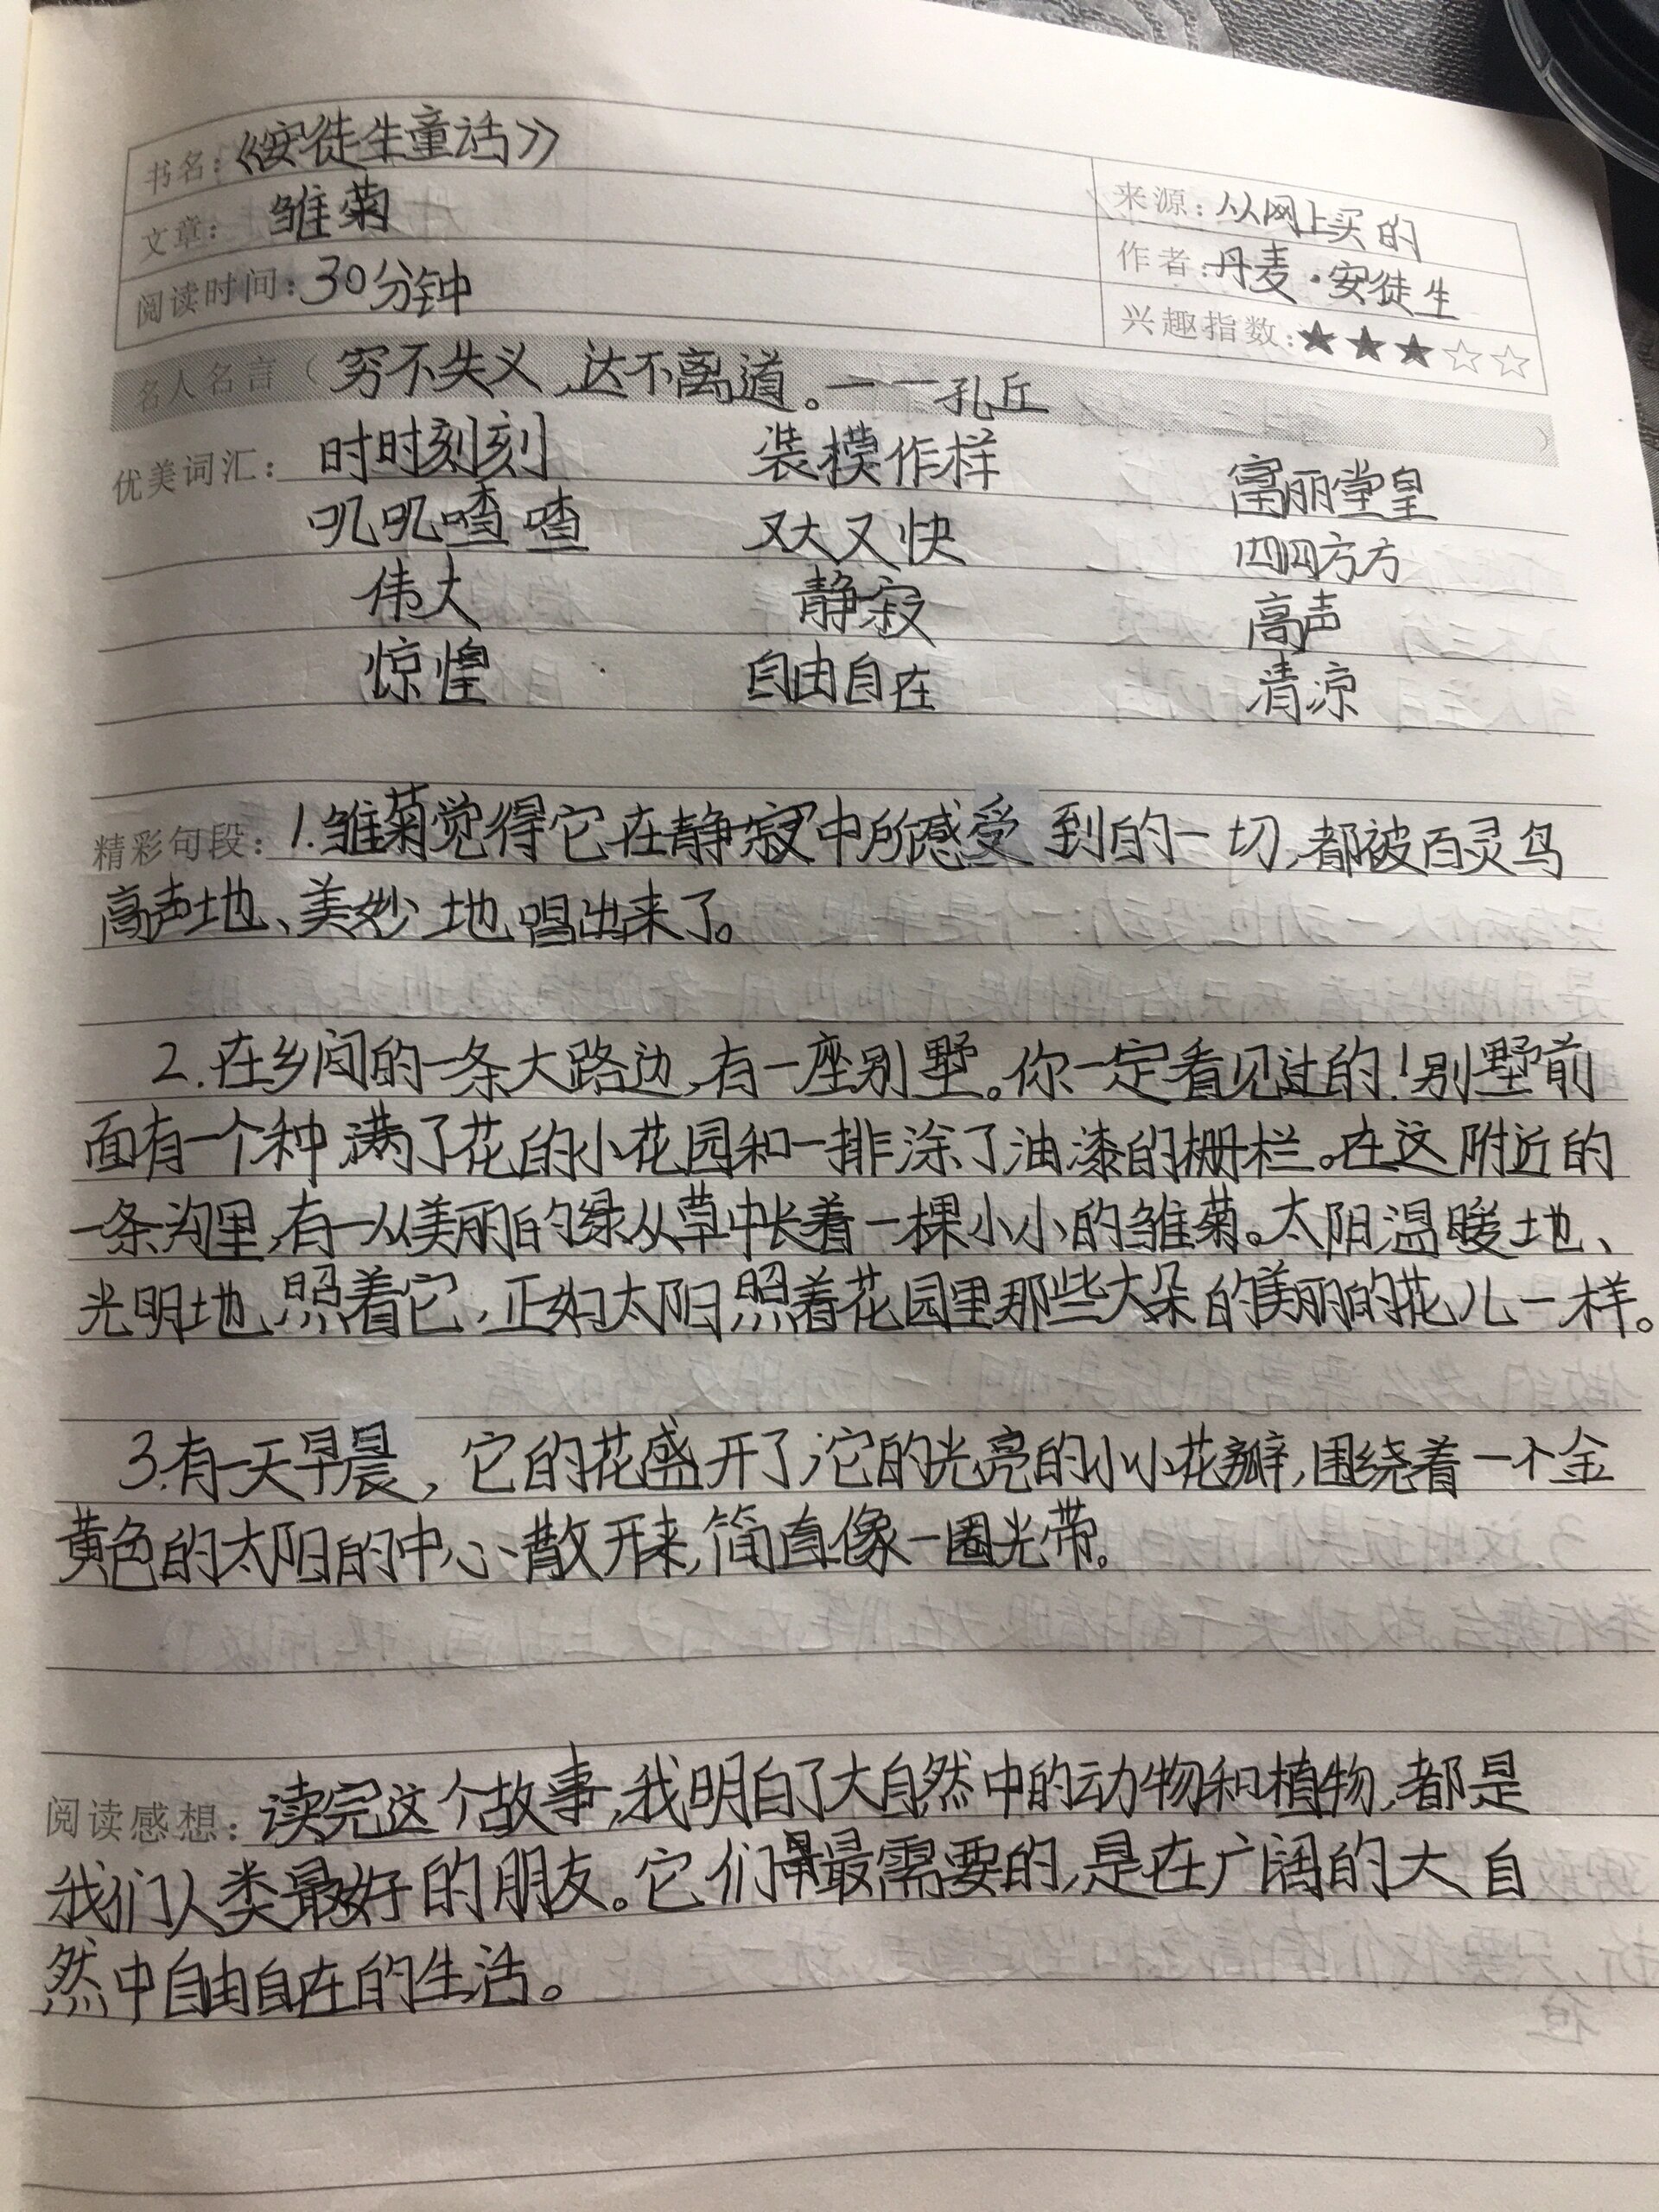 书名：《安徒生童话》
来源：从网上买的
文章： 雏菊
作者：丹麦·安徒生
阅读时间：30分钟
兴趣指数：★★★☆☆
名人名言（穷不失义，达不离道。——孔丘）
优美词汇： 时时刻刻 装模作样 富丽堂皇
叽叽喳喳 又大又快 四四方方
伟大 静寂 高声
惊煌 自由自在 清凉
精彩句段：1.雏菊觉得它在静寂中所感受到的一切，都被百灵鸟
高声地、美妙地唱出来了。
2.在乡间的一条大路边，有一座别墅。你一定看见过的！别墅前
面有一个种满了花的小花园和一排涂了油漆的栅栏。在这附近的
一条沟里，有一从美丽的绿从草中长着一棵小小的雏菊。太阳温暖地、
光明地照着它，正如太阳照着花园里那些大朵的美丽的花儿一样。
3.有一天早晨，它的花盛开了，它的光亮的小小花瓣，围绕着一个金
黄色的太阳的中心散开来，简直像一圈光带。
阅读感想：读完这个故事，我明白了大自然中的动物和植物，都是
我们人类最好的朋友。它们最需要的，是在广阔的大自
然中自由自在的生活。